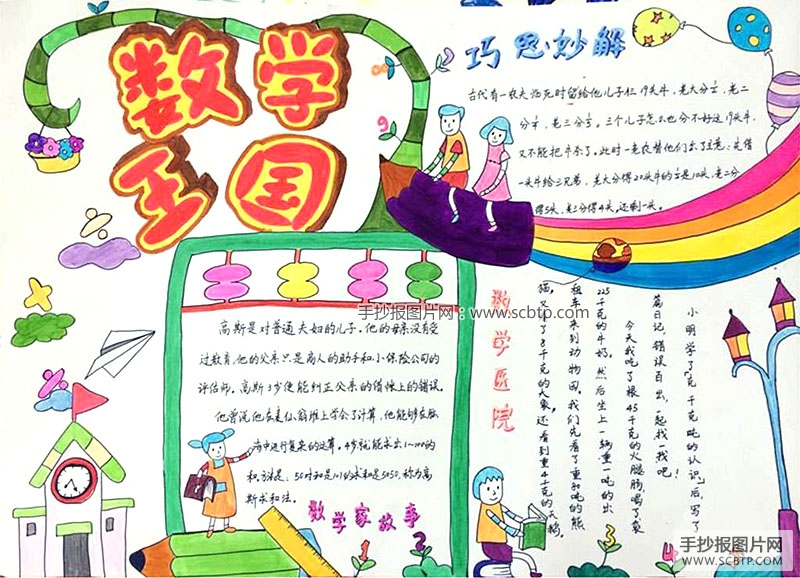 数学
王国
巧思妙解
古代有一农夫临死时留给他儿子仨19头牛，老大分½，老二
分¼，老三分⅕。三个儿子怎么也分不好这19头牛，
又不能把牛杀了。此时一老农替他们出了主意：先借
一头牛给三兄弟，老大分得20头牛的½是10头，老二分
得5头，老三分得4头，还剩一头。
手抄报图片网：www.scbtp.com
高斯是对普通夫妇的儿子。他的母亲没有受
过教育，他的父亲只是商人的助手和小保险公司的
评估师。高斯3岁便能纠正父亲的借债上的错误。
他曾说他在麦仙翁堆上学会了计算，他能够在脑
海中进行复杂的运算。
1~100的
和，方法是：50对和是101的求和是5050，称为高
斯求和法。
数学家故事
数学医院
小明学了克、千克、吨的认识后，写了一
篇日记，错误百出，一起找找吧！
今天我吃了根45千克的火腿肠，喝了袋
225千克的牛奶，然后坐上一辆重一吨的出
租车来到动物园。我们先看了重
吨的熊
猫，又看了8千克的大象，还看到重4千克的天鹅。
1
2
3
4
9
手抄报图片网
WWW.SCBTP.COM